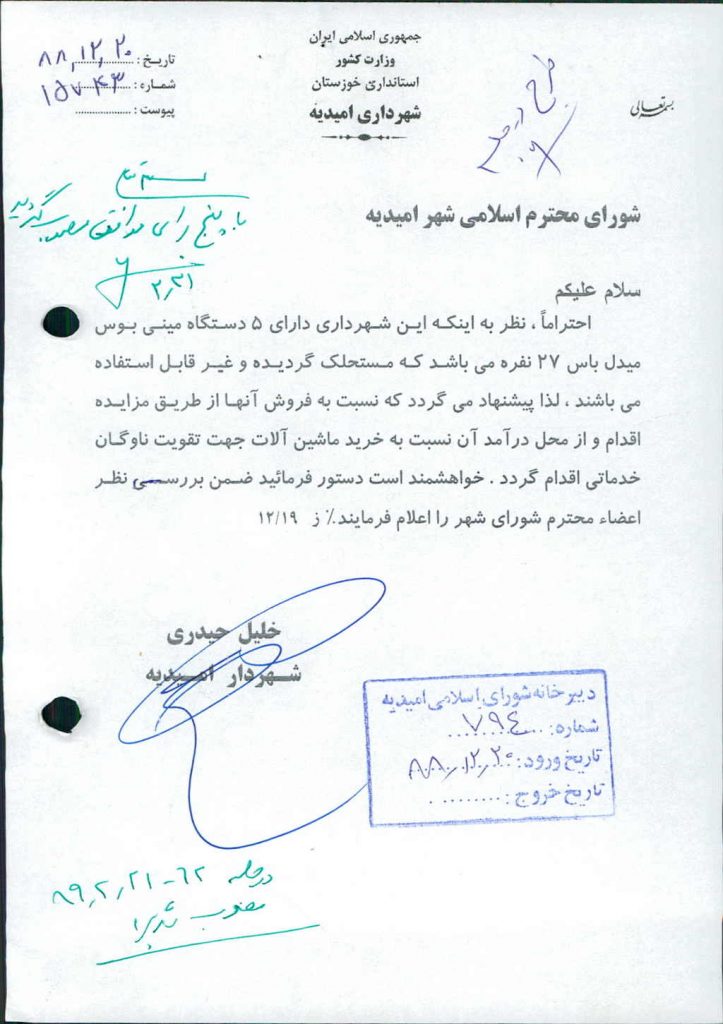 بسمه تعالی
جمهوری اسلامی ایران
وزارت کشور
استانداری خوزستان
شهرداری امیدیه
تاریخ : ۸۸,۱۲,۲۰
شماره : ۱۵۷۴۳
پیوست :
طرح در جلسه
با پنج رای موافق مصوب گردید
۲,۲۱
شورای محترم اسلامی شهر امیدیه
سلام علیکم
احتراماً ، نظر به اینکه این شهرداری دارای ۵ دستگاه مینی بوس
میدل باس ۲۷ نفره می باشد که مستحلک گردیده و غیر قابل استفاده
می باشند ، لذا پیشنهاد می گردد که نسبت به فروش آنها از طریق مزایده
اقدام و از محل درآمد آن نسبت به خرید ماشین آلات جهت تقویت ناوگان
خدماتی اقدام گردد . خواهشمند است دستور فرمائید ضمن بررسی نظر
اعضاء محترم شورای شهر را اعلام فرمایند٪ ز ۱۲/۱۹
خلیل حیدری
شهردار امیدیه
دبیرخانه شورای اسلامی امیدیه
شماره: ۷۹۴
تاریخ ورود: ۸۸,۱۲,۲۰
تاریخ خروج :
در جلسه ۶۲ - ۸۹,۲,۲۱
مصوب شد